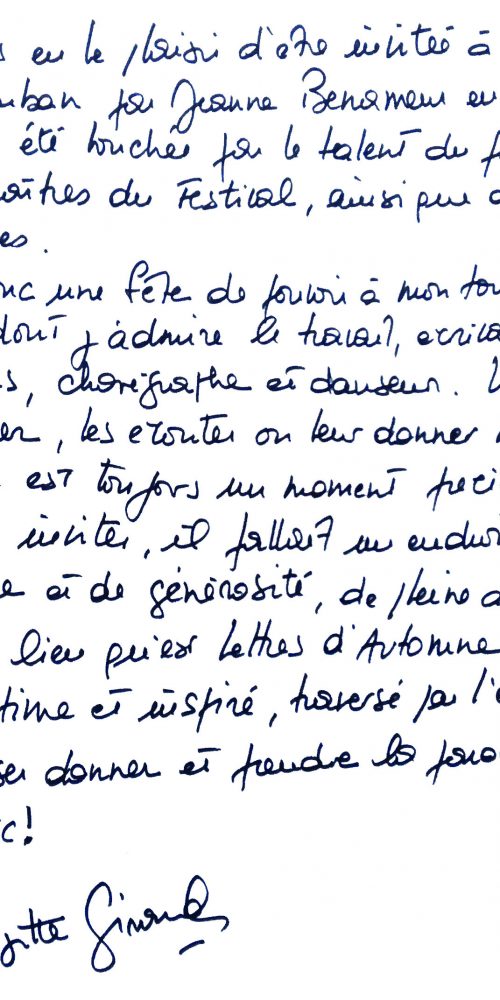 eu le plaisir d'être invitée à
uban par Jeanne Benameur en
été touchée par le talent du
aîtres du Festival, ainsi que
es.
nc une fête de pouvoir à mon tou
dont j'admire le travail, écriva
s, chorégraphe et danseur. L
er, les écouter ou leur donner
est toujours un moment préci
inviter, il fallait un endroi
e et de générosité, de pleine
lieu qu'est Lettres d'Automne
time et inspiré, traversé par l'
ser donner et prendre la paro
c!
gitte Giraud